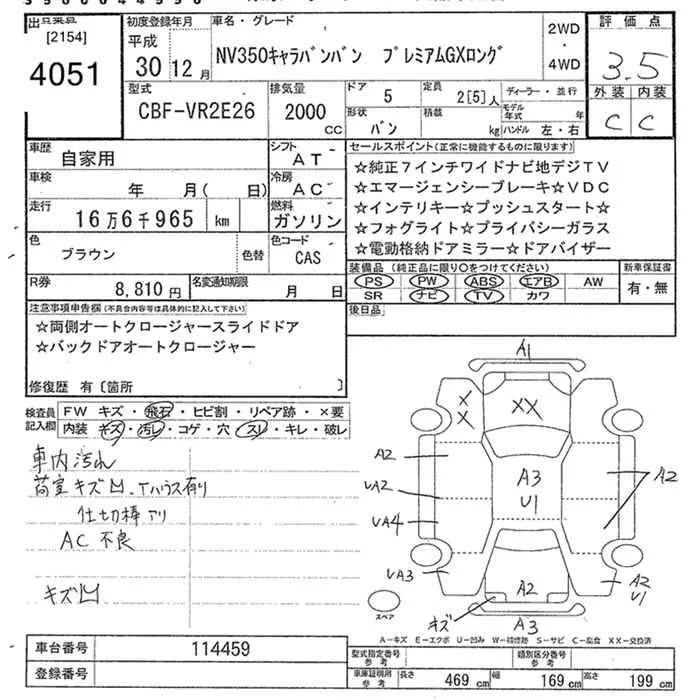 [2154]
4051
初度登録年月
平成
30 12 月
車名・グレード
NV350キャラバンバン プレミアムGXロング
2WD
・
4WD
評価点
3.5
外装 内装
C C
型式
CBF-VR2E26
排気量
2000
CC
ドア
5
定員
2[5]人
形状
バン
積載
kg
ディーラー・並行
モデル年式 年
ハンドル 左・右
車歴
自家用
シフト
AT
車検
年 月( 日)
冷房
AC
走行
16万6千965 km
燃料
ガソリン
色
ブラウン
色替
色コード
CAS
R券
8,810円
名変通知期限
月 日
セールスポイント(正常に機能するものに限ります)
☆純正7インチワイドナビ地デジTV
☆エマージェンシーブレーキ☆VDC
☆インテリキー☆プッシュスタート☆
☆フォグライト☆プライバシーガラス
☆電動格納ドアミラー☆ドアバイザー
装備品(純正品に限り〇をつけてください)
PS PW ABS エアB AW
SR ナビ TV カワ
新車保証書
有・無
後日品
注意事項申告欄(不具合内容等は具体的に記入して下さい)
☆両側オートクロージャースライドドア
☆バックドアオートクロージャー
修復歴 有〔箇所 〕
検査員記入欄
FW キズ・飛石・ヒビ割・リペア跡・×要
内装 キズ・汚レ・コゲ・穴・スレ・キレ・破レ
車内汚れ
荷室キズ凹、Tハウス有り
仕切棒アリ
AC 不良
キズ凹
A1
X
X
XX
A2
A3
U1
A2
UA2
UA4
UA3
A2
U1
A2
キズ
A3
スペア
A-キズ E-エクボ U-凹み W-補修跡 S-サビ C-腐食 XX-交換済
車台番号
114459
登録番号
型式指定番号
参考
類別区分番号
参考
車庫証明用
参考
長さ 469 cm 幅 169 cm 高さ 199 cm